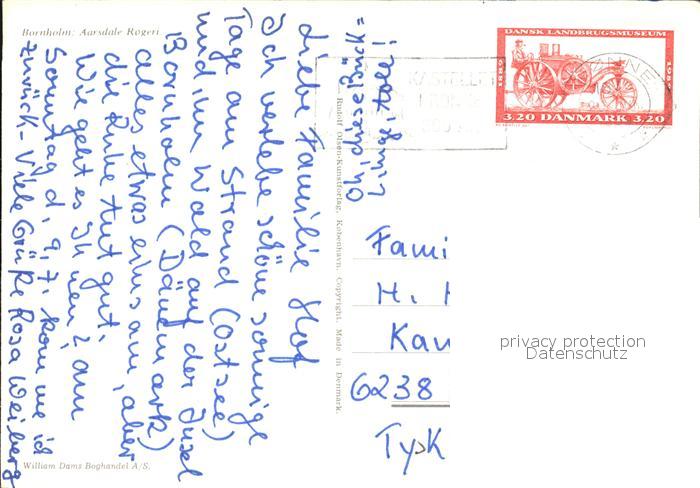 Bornholm: Aarsdale Rogeri
Liebe Familie Hof
Ich verlebe schöne sonnige
Tage am Strand (Ostsee)
und im Wald auf der Insel
Bornholm (Dänemark)
alles etwas einsam, aber
die Ruhe tut gut.
Wie geht es Ihnen? am
Sonntag d. 9.7. komme ich
zurück - Viele Grüße Rosa Weiberg
Oh, diese Drück=
Linge tole!
Rudolf Olsen-Kunstforlag, København. Copyright. Made in Denmark.
William Dams Boghandel A/S.
DANSK LANDBRUGSMUSEUM
1889
3.20 DANMARK 3.20
RØNNE
Fami
H. H
Kau
6238
TysK
privacy protection
Datenschutz